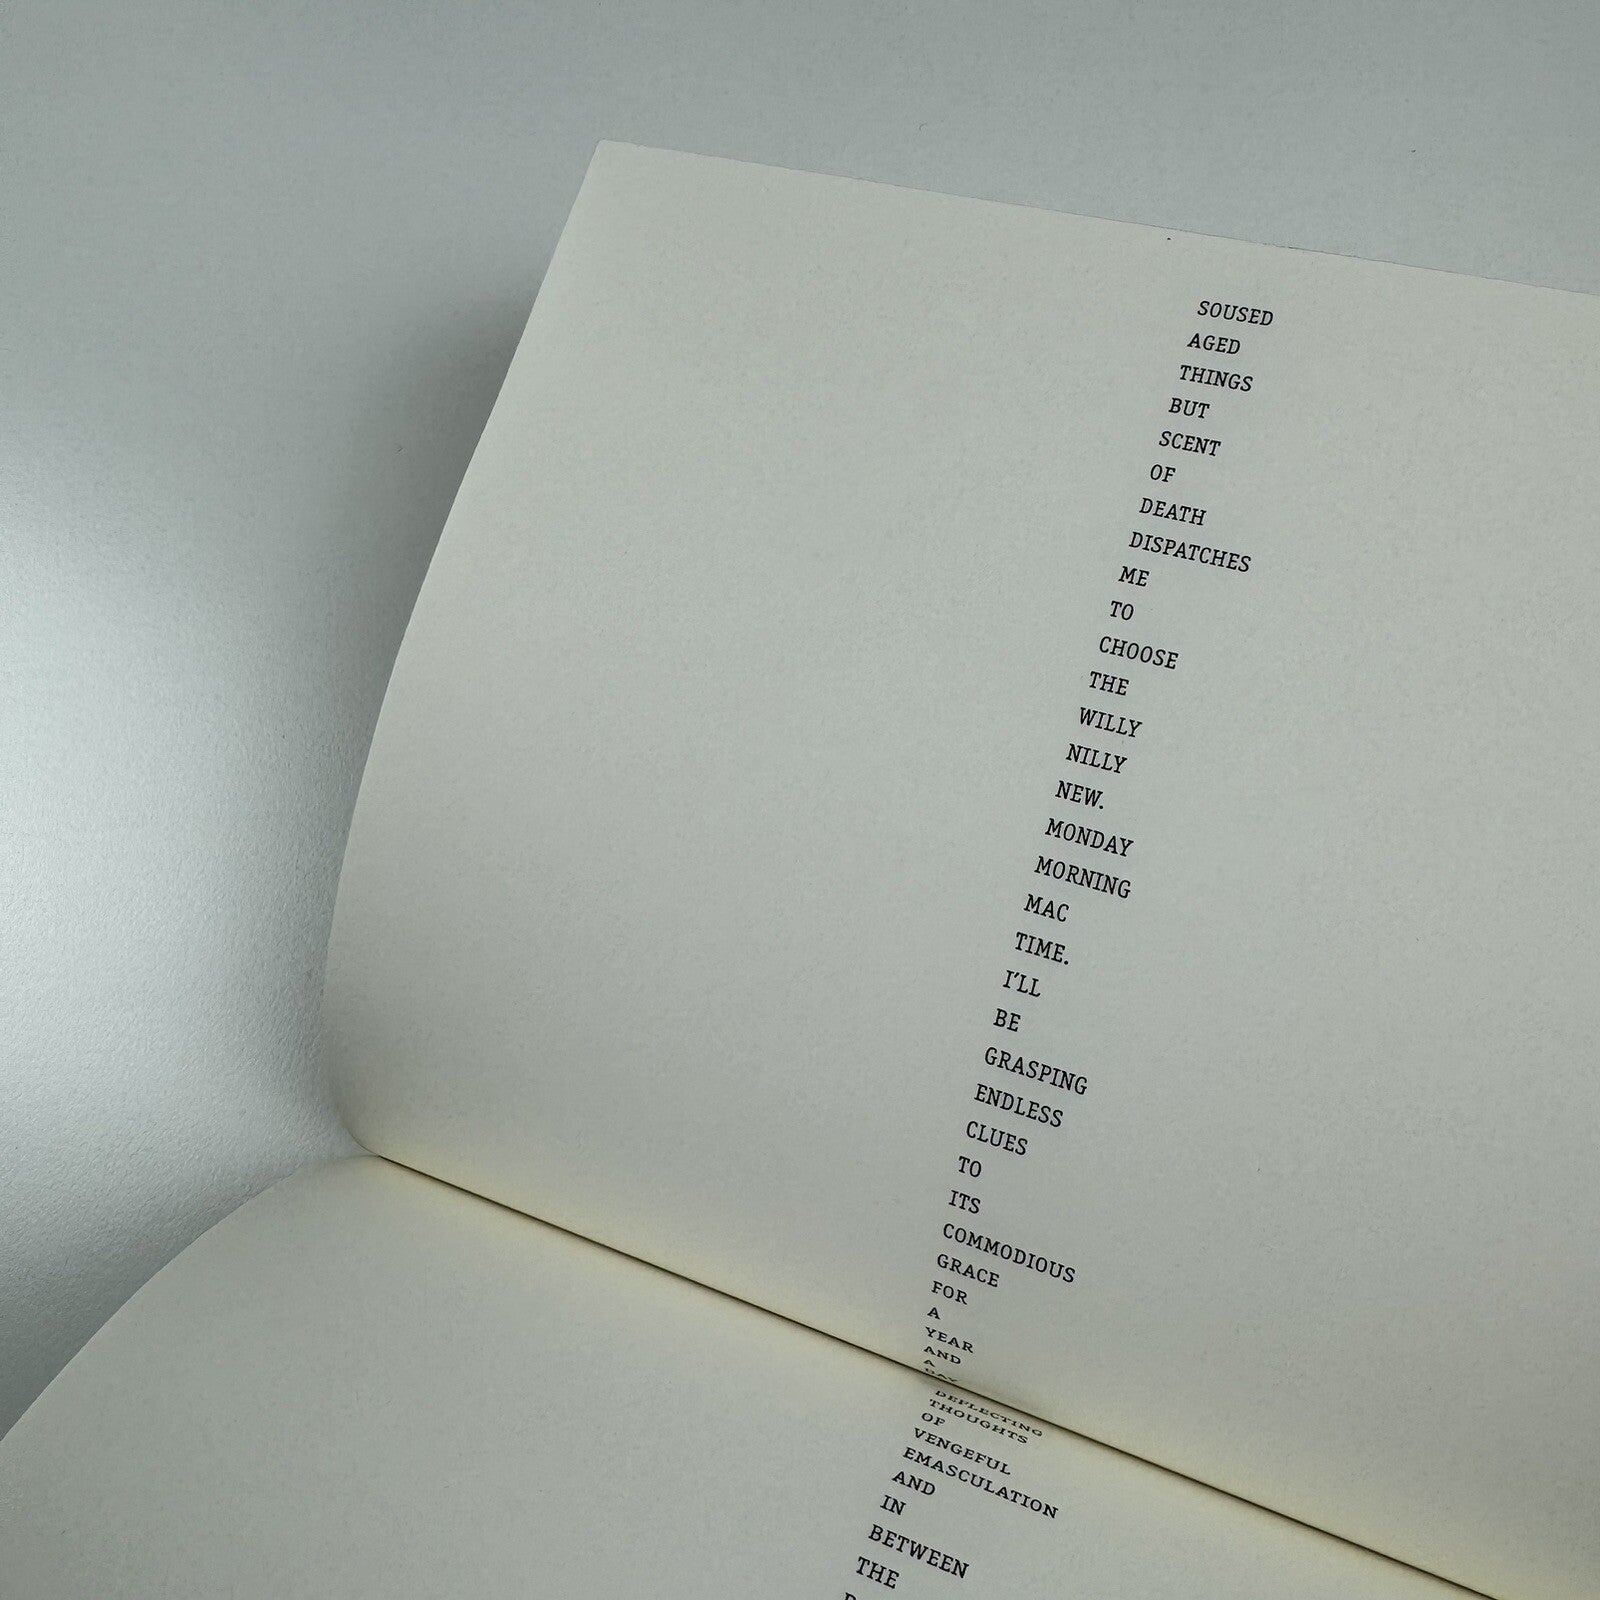 SOUSED
AGED
THINGS
BUT
SCENT
OF
DEATH
DISPATCHES
ME
TO
CHOOSE
THE
WILLY
NILLY
NEW.
MONDAY
MORNING
MAC
TIME.
I'LL
BE
GRASPING
ENDLESS
CLUES
TO
ITS
COMMODIOUS
GRACE
FOR
A
YEAR
AND
A
DAY
DEFLECTING
THOUGHTS
OF
VENGEFUL
EMASCULATION
AND
IN
BETWEEN
THE